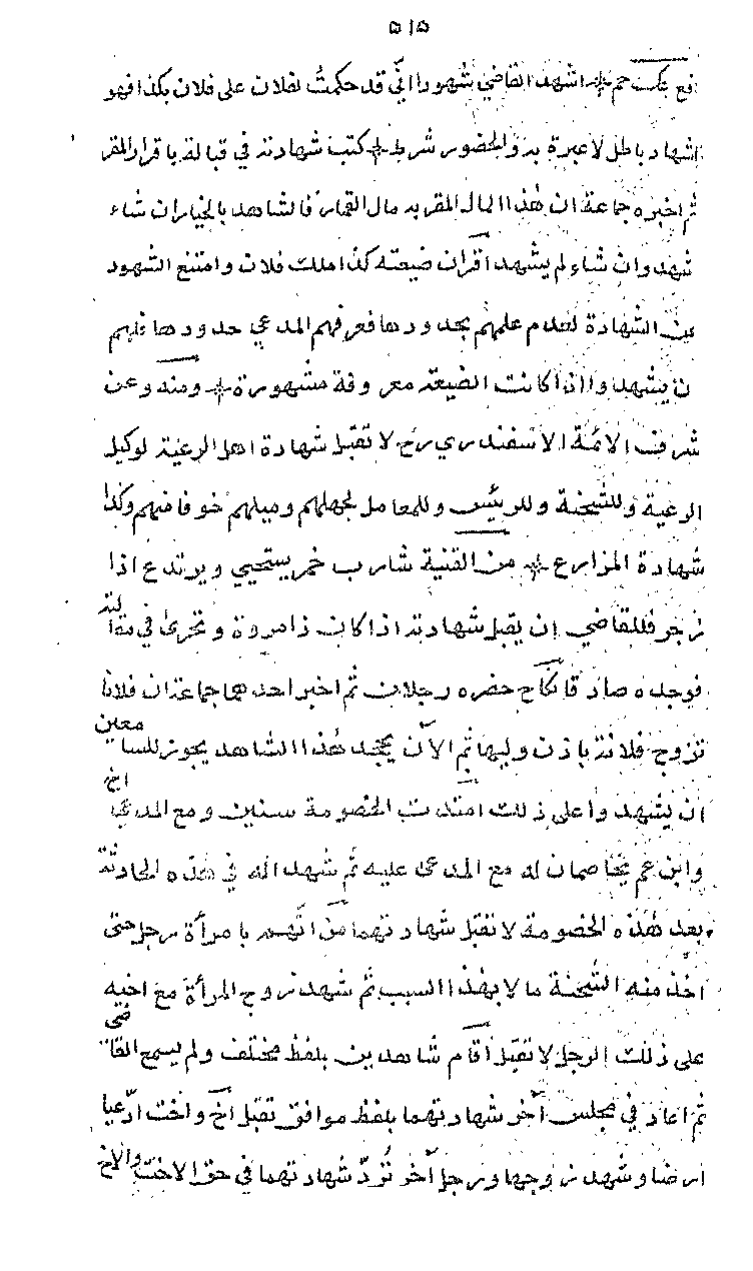 ۵۱۵
فع عك حم * اشهد القاضي شهودا اني قد حكمت لفلان على فلان بكذا فهو
اشهاد باطل لا عبرة به والحضور شرط * كتب شهادته في قبالة باقرار المقر
ثم اخبره جماعة ان هذا المال المقر به مال القمار فالشاهد بالخيار ان شاء
شهد وان شاء لم يشهد اقر ان ضيعته كذا ملك فلان وامتنع الشهود
عن الشهادة لعدم علمهم بحدودها فعرفهم المدعي حدودها فلهم
ان يشهدوا اذا كانت الضيعة معروفة مشهورة * ومنه وعن
شرف الائمة الاسفندري رح لا تقبل شهادة اهل الرعية لوكيل
الرعية وللشحنة وللرئيس وللعامل لجهلهم وميلهم خوفا منهم وكذا
شهادة المزارع * من القنية شارب خمر يستحيي ويرتدع اذا
زجر فللقاضي ان يقبل شهادته اذا كان ذا مروة وتحرى في مقالته
فوجده صادقا نكاح حضره رجلان ثم اخبر احدهما جماعة ان فلانا
تزوج فلانة باذن وليها ثم الآن يجحد هذا الشاهد يجوز للسامعين
ان يشهدوا على ذلك امتدت الخصومة سنين ومع المدعي اخ
وابن عم يخاصمان له مع المدعى عليه ثم شهدا له في هذه الحادثة
بعد هذه الخصومة لا تقبل شهادتهما من اتهم بامرأة رجل حتى
اخذ منه الشحنة مالا بهذا السبب ثم شهد زوج المرأة مع اخيه
على ذلك الرجل لا تقبل اقام شاهدين بلفظ مختلف ولم يسمع القاضى
ثم اعاد في مجلس آخر شهادتهما بلفظ موافق تقبل اخ واخت ادعيا
ارضا وشهد زوجها ورجل آخر ترد شهادتهما في حق الاخت والاخ